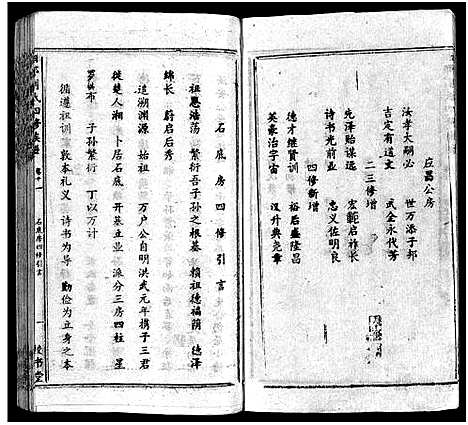 应昌公房
汝孝大朝必 世万添子邦
吉定有道文 武金永代芳
二三修增
先泽贻谋远 宏启祚长
诗书光前业 忠义佐明良
德才继贤训 裕后盛隆昌
四修新增
英豪治宇宙 汉升典尧章
石底房四修引言
祖恩浩荡 繁衍吾子孙之根基 赖祖德福荫 德泽
绵长 蔚启后秀
追溯渊源 始祖 万户公自明洪武元年携子三君
徙楚人湘 卜居石底 开基立业 派分三房四柱 星
罗棋布 子孙繁衍
循遵祖训 敦本礼义 诗书为导 勤俭为立身之本
四修族谱
石底房四修引言
一